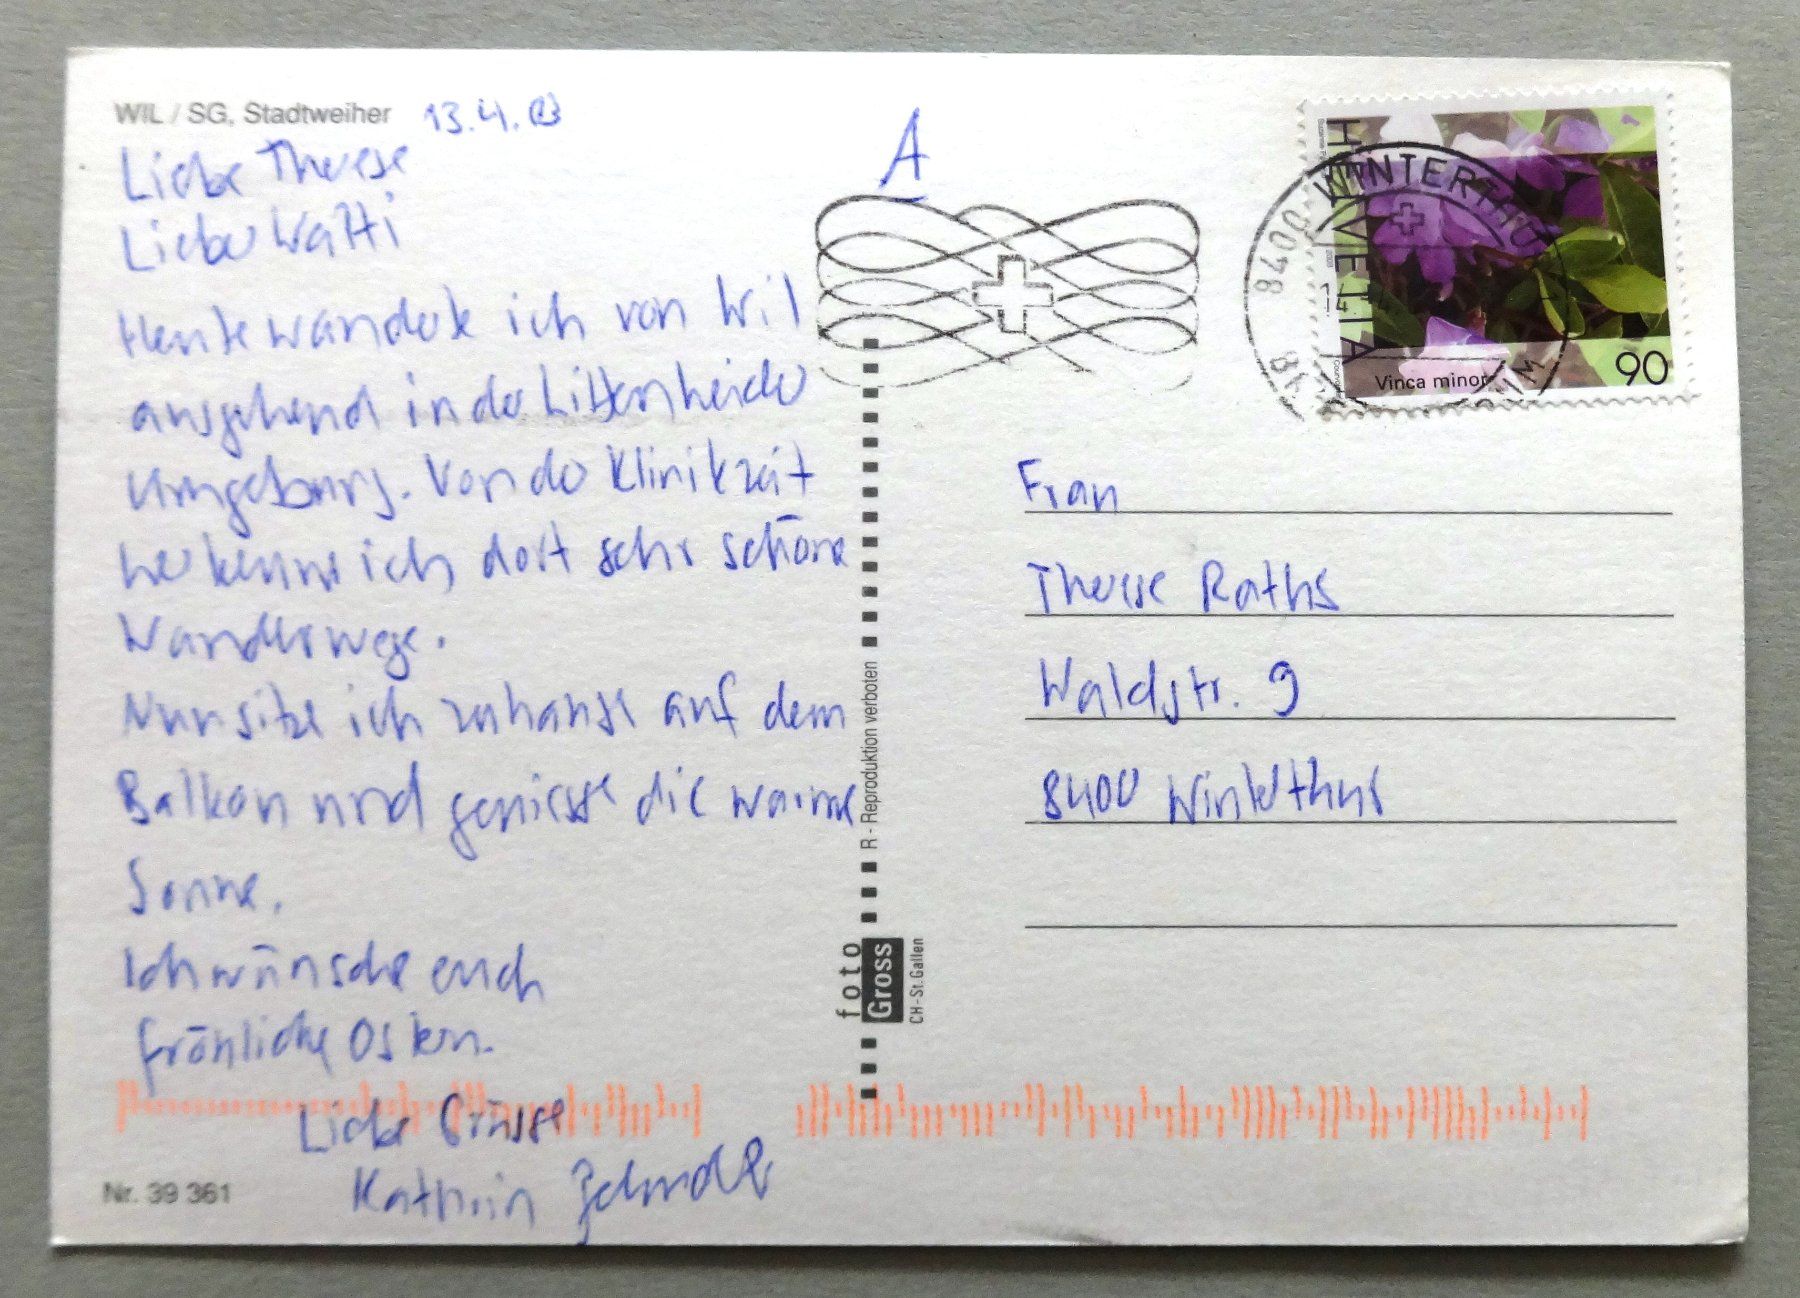 WIL / SG, Stadtweiher 13.4.03
Liebe Therese
Lieber Watti
Heute wanderte ich von Wil
ausgehend in der Littenheider
Umgebung. Von der Klinikzeit
her kenne ich dort sehr schöne
Wanderwege.
Nun sitze ich zuhause auf dem
Balkon und geniesse die warme
Sonne.
Ich wünsche euch
fröhliche Ostern.
Liebe Grüsse
Kathrin
Nr. 39 361
R - Reproduktion verboten
foto
Gross
CH - St. Gallen
A
8400 WINTERTHUR
HELVETIA
Vinca minor
90
Frau
Therese Raths
Waldstr. 9
8400 Winterthur